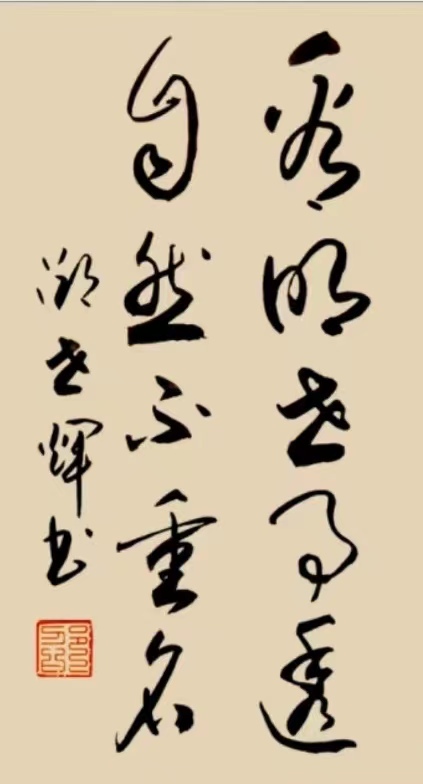 看明世事透
自然不重名
世辉书